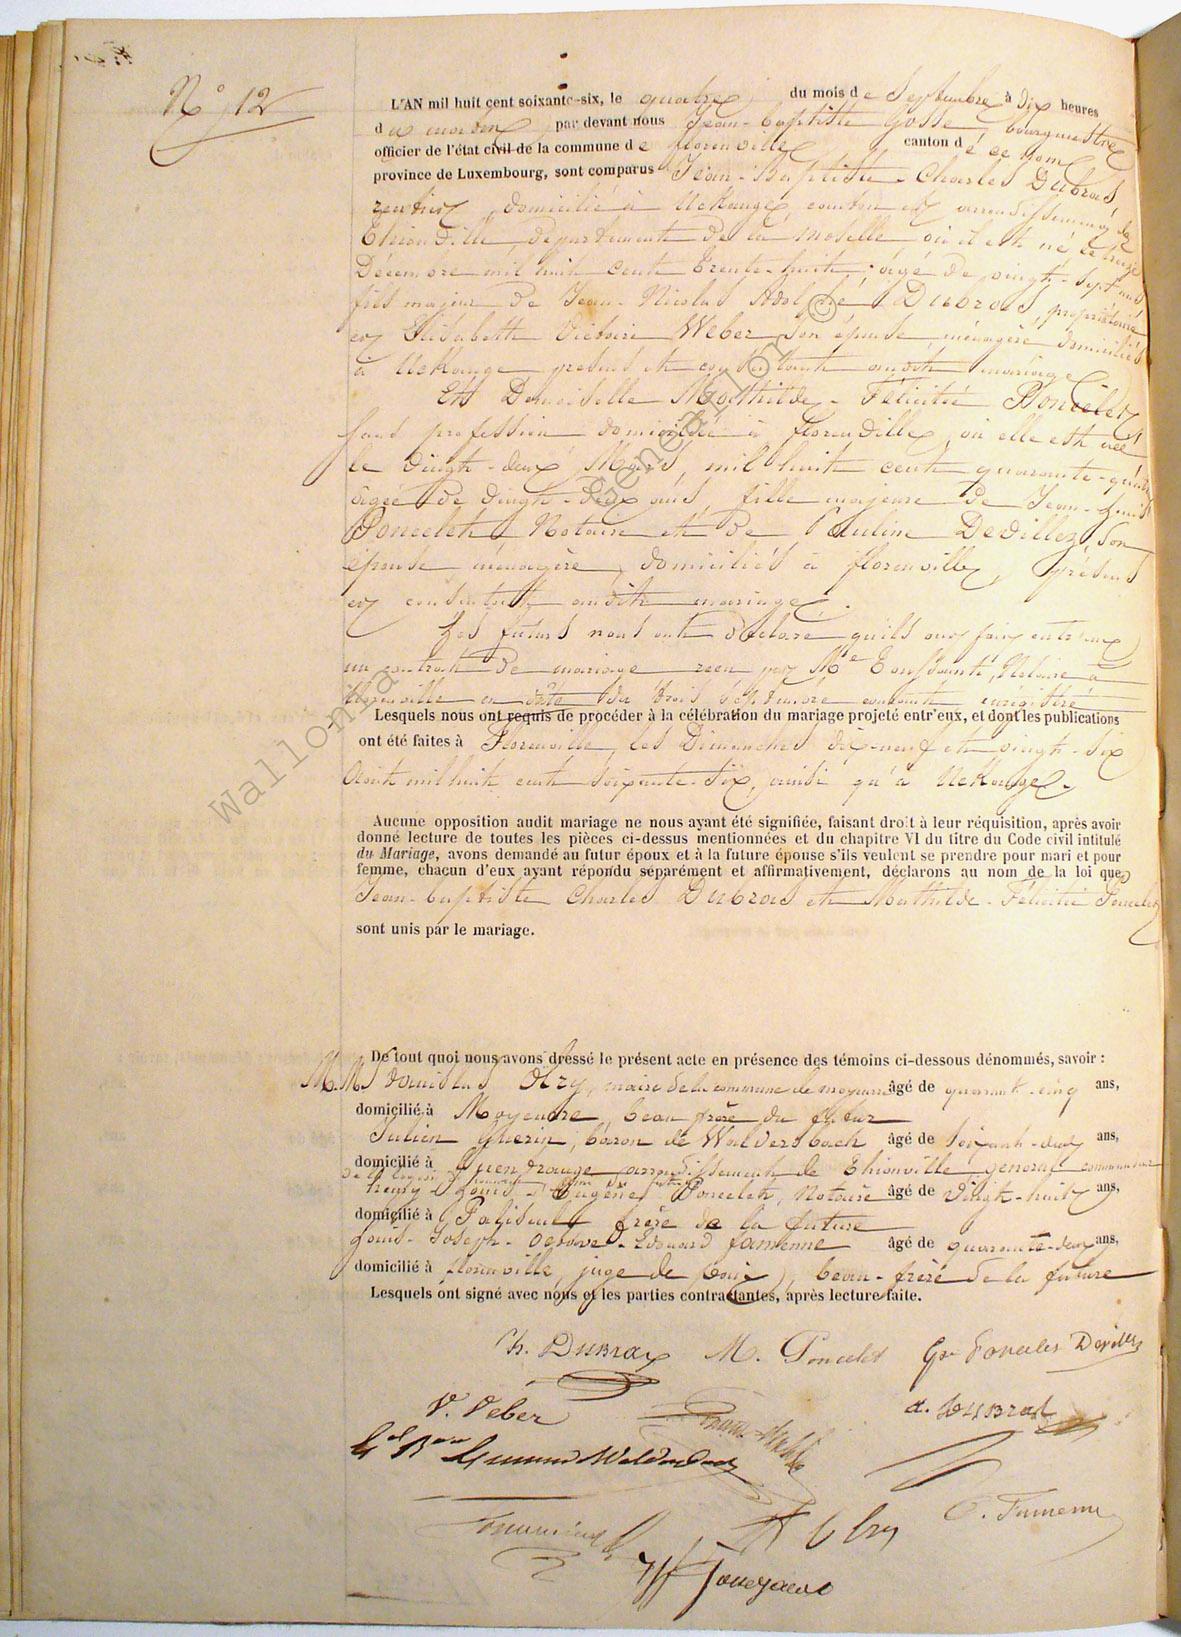 N° 12
L'AN mil huit cent soixante-six, le quatre du mois de Septembre à dix heures
du matin par devant nous Jean-Baptiste Gosse, bourgmestre
officier de l'état civil de la commune de florenville canton de ce nom
province de Luxembourg, sont comparus Jean-Baptiste-Charles Dubras
rentier, domicilié à Uckange, canton et arrondissement de
Thionville, département de la Moselle où il est né le treize
Décembre mil huit cent trente-huit, âgé de vingt-sept ans
fils majeur de Jean-Nicolas Adolphe Dubras, propriétaire
et Elisabeth Victoire Weber son épouse ménagère domiciliés
à Uckange présents et consentants audit mariage
Et Demoiselle Mathilde-Félicité Poncelet
sans profession domiciliée à florenville, où elle est née
le vingt-deux Mars, mil huit cent quarante-quatre
âgée de vingt-deux ans, fille majeure de Jean-Louis
Poncelet Notaire et de Pauline Devillez, son
épouse ménagère, domiciliés à florenville, présents
et consentants audit mariage.
Les futurs nous ont déclaré qu'ils ont fait entr'eux
un contrat de mariage reçu par Me Toussaint, Notaire à
florenville en date du trois Septembre courant enrégistré
Lesquels nous ont requis de procéder à la célébration du mariage projeté entr'eux, et dont les publications
ont été faites à Florenville, les Dimanches dix-neuf et vingt-six
Août mil huit cent soixante-six, ainsi qu'à Uckange.
Aucune opposition audit mariage ne nous ayant été signifiée, faisant droit à leur réquisition, après avoir
donné lecture de toutes les pièces ci-dessus mentionnées et du chapitre VI du titre du Code civil intitulé
du Mariage, avons demandé au futur époux et à la future épouse s'ils veulent se prendre pour mari et pour
femme, chacun d'eux ayant répondu séparément et affirmativement, déclarons au nom de la loi que
Jean-baptiste Charles Dubras et Mathilde-Félicité Poncelet
sont unis par le mariage.
De tout quoi nous avons dressé le présent acte en présence des témoins ci-dessous dénommés, savoir :
M.M. Stanislas Olry, maire de la commune de moyeuvre âgé de quarante-cinq ans,
domicilié à Moyeuvre, beau frère du futur
Julien Guerin, baron de Waldersbach âgé de soixante-deux ans,
domicilié à Guentrange arrondissement de Thionville, général commandeur
de la légion d'honneur
Henry-Louis-Eugène Poncelet, Notaire âgé de vingt-huit ans,
domicilié à Paliseul frère de la future
Louis-Joseph-Octave-Edouard famenne âgé de quarante-deux ans,
domicilié à florenville, juge de paix, beau-frère de la future
Lesquels ont signé avec nous et les parties contractantes, après lecture faite.
Ch. Dubras M. Poncelet Poncelet Devillez
V. Veber A. Dubras
Gal Bon Guerin Waldersbach
St Olry O. Famenne
Wallonia Genealor ©